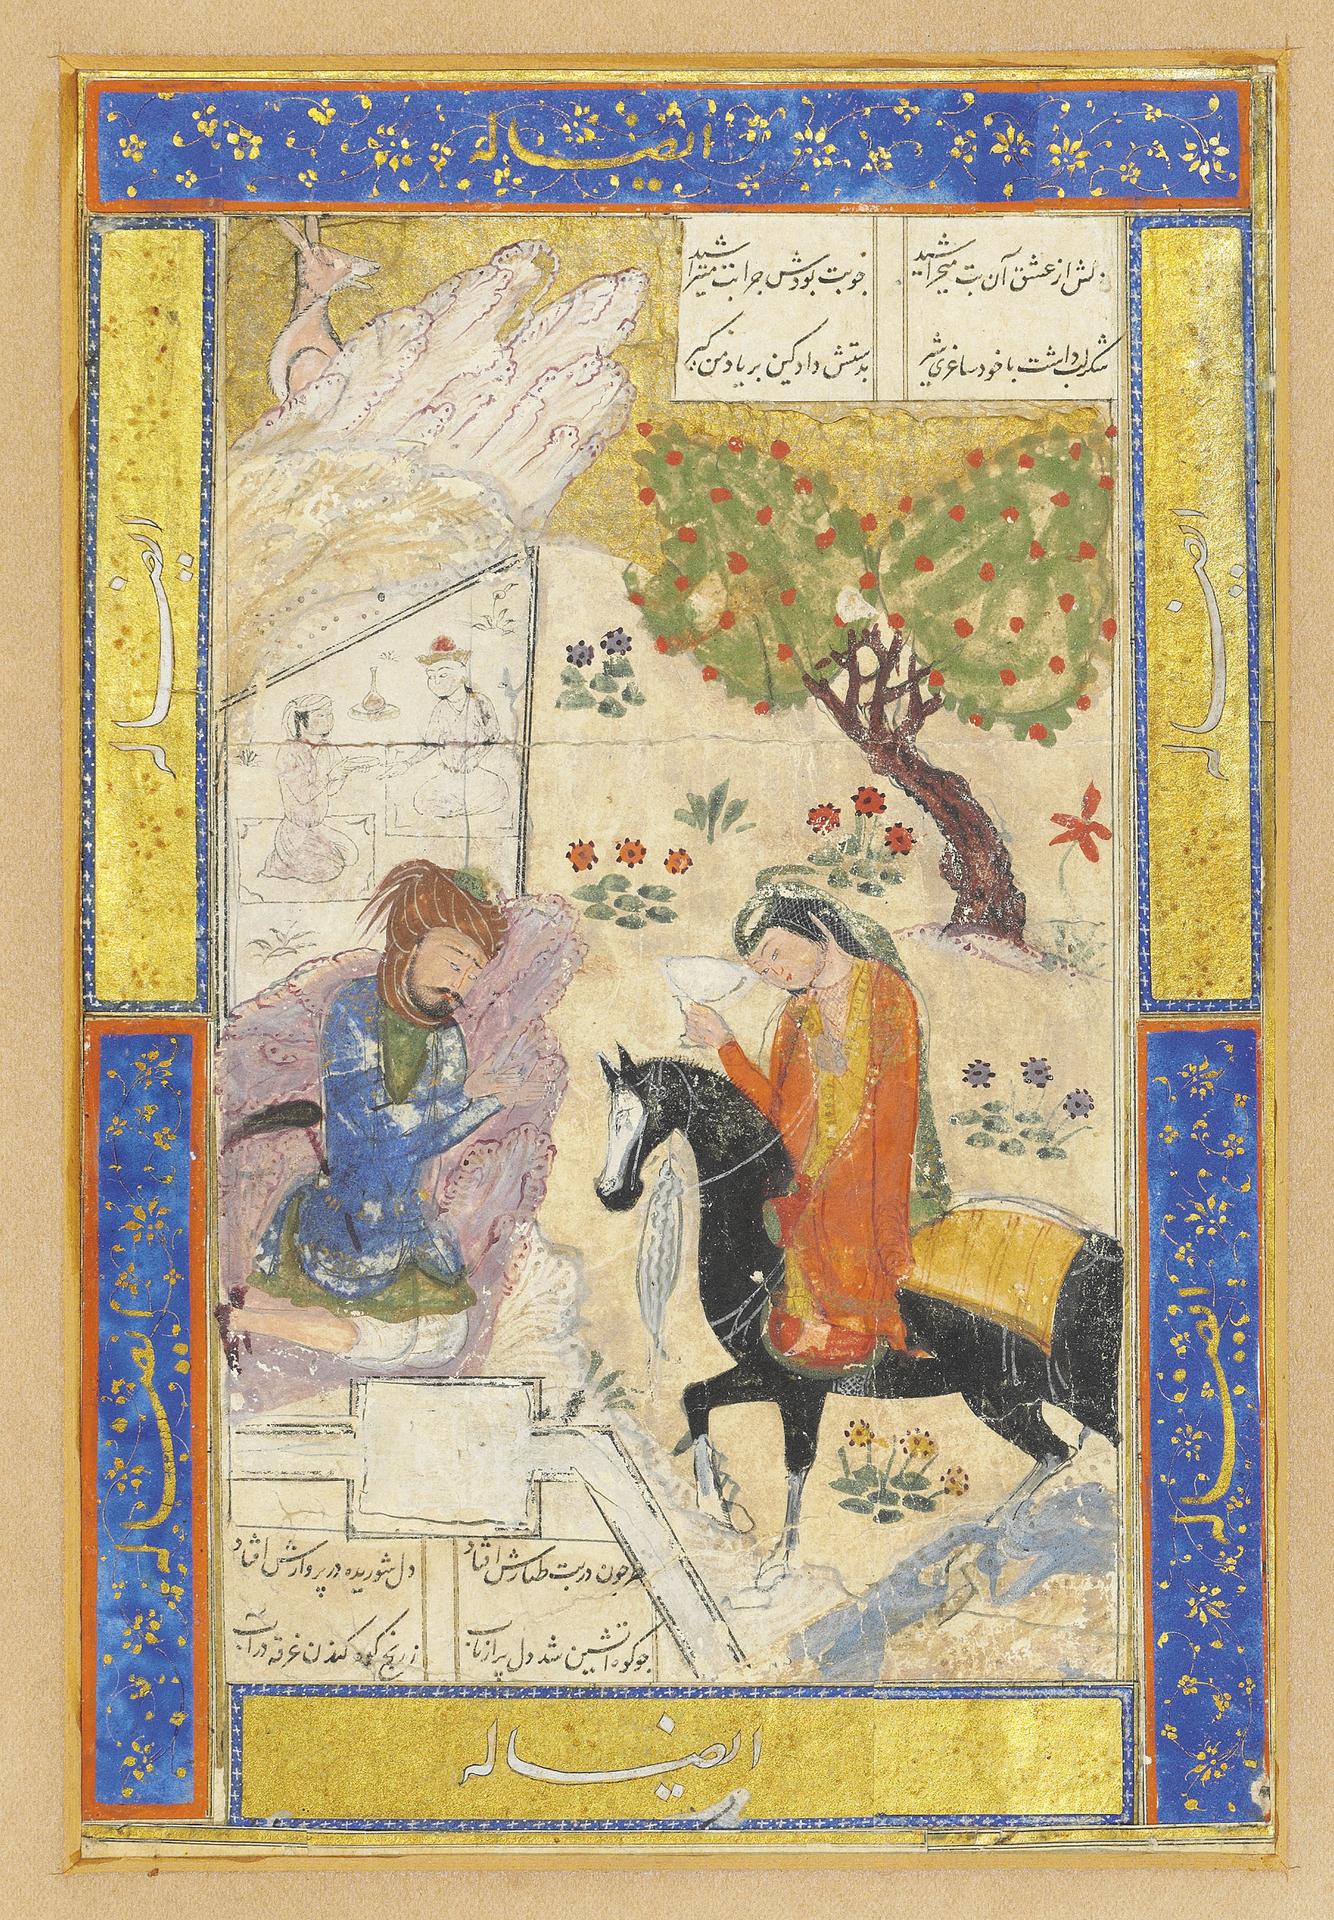 ایضا له
دلش از عشق آن بت میخراشید
چو بت بودش جرا بت میتراشید
شکرلب داشت با خود ساغری شیر
بدستش داد کین بر یاد من کیر
ایضا له
ایضا له
ایضا له
ایضا له
چون در بت طنازش افتاد
دل شوریده در پروازش افتاد
جو کوه اتشین شد دل پر از تاب
ز رنج کوه کندن غرقه در اب
ایضا له